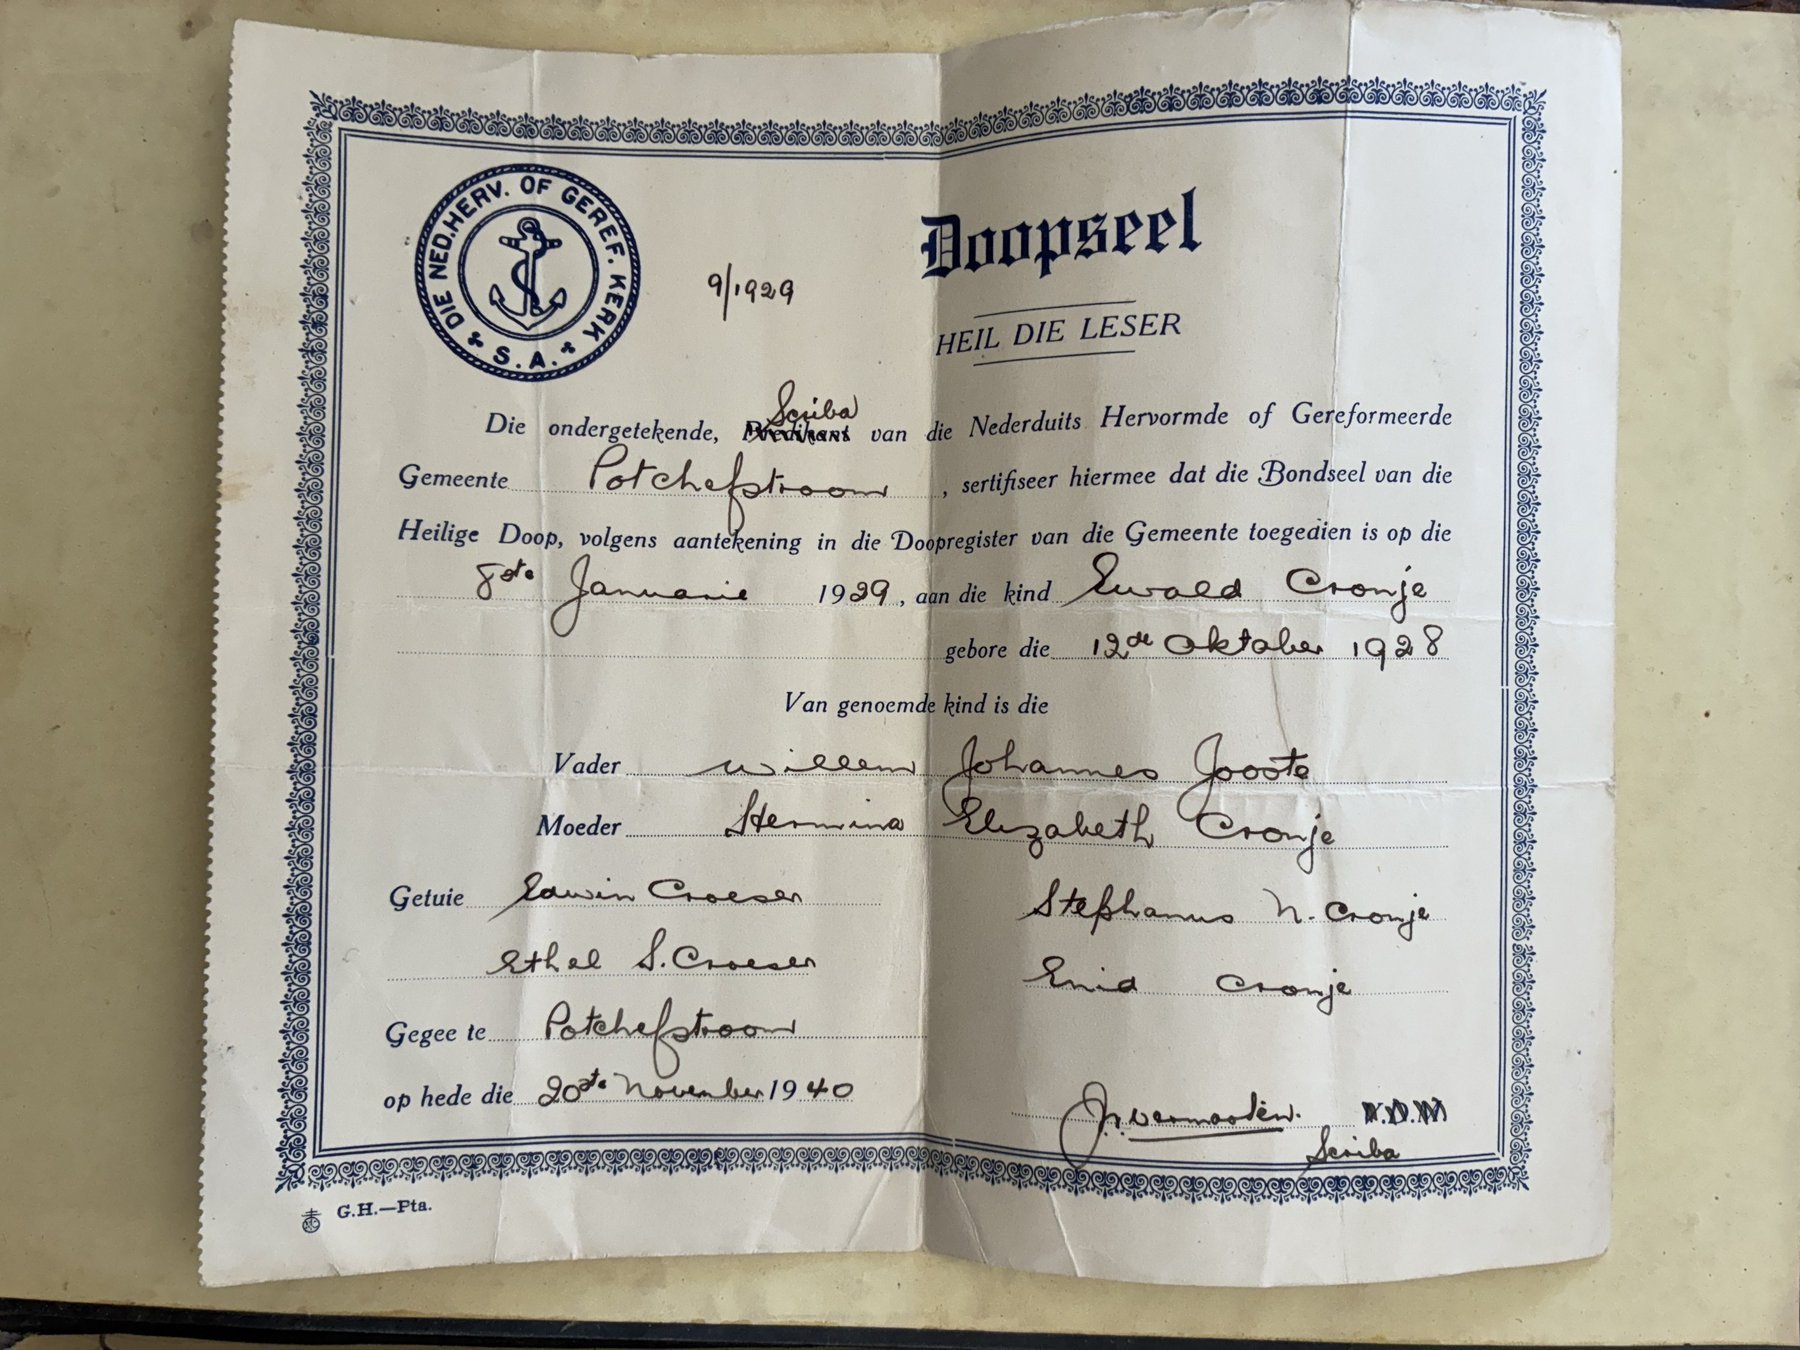 DIE NED. HERV. OF GEREF. KERK S.A.
9/1929
Doopseel
HEIL DIE LESER
Scriba
Die ondergetekende, Predikant van die Nederduits Hervormde of Gereformeerde
Gemeente Potchefstroom, sertifiseer hiermee dat die Bondseel van die
Heilige Doop, volgens aantekening in die Doopregister van die Gemeente toegedien is op die
8ste Januarie 1929, aan die kind Ewald Cronje
gebore die 12de Oktober 1928
Van genoemde kind is die
Vader Willem Johannes Jooste
Moeder Hermina Elizabeth Cronje
Getuie Edwin Croeser Stephanus N. Cronje
Ethel S. Croeser Enid Cronje
Gegee te Potchefstroom
op hede die 20ste November 1940
V.D.M
Scriba
G.H.—Pta.